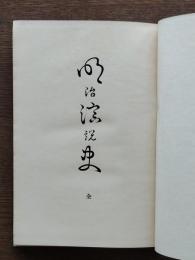 明治演説史
全